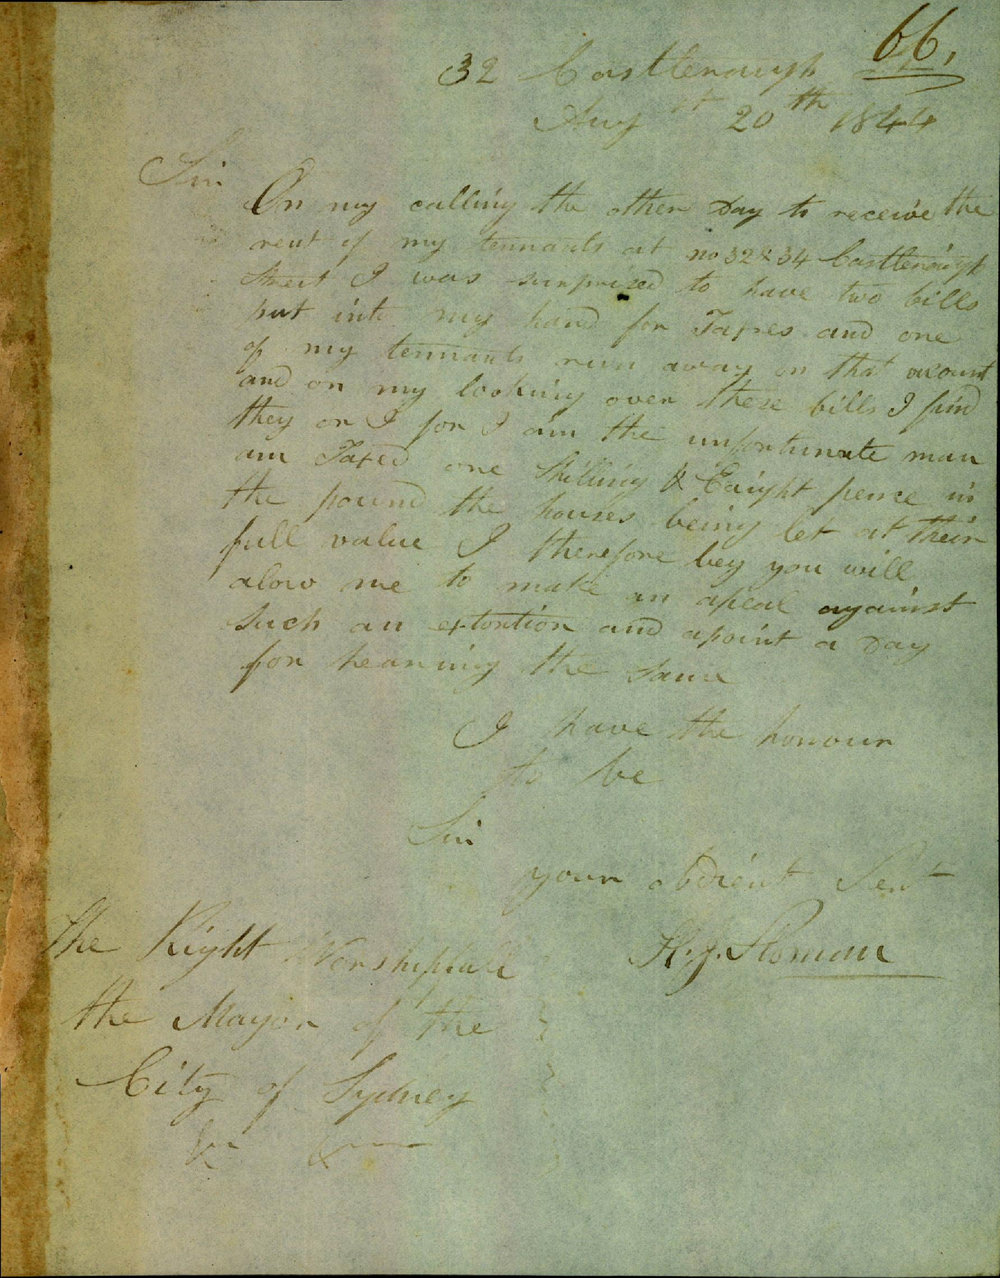 66.
32 Castlereaugh
Augst 20th 1844
Sir
On my calling the other Day to receive the
rent of my tennants at no 32 & 34 Castlereaugh
Street I was surprized to have two bills
put into my hand for Taxes and one
of my tennants run away on that acount
and on my looking over these bills I find
they or I for I am the unfortunate man
am Taxed one Shilling & Eaight pence in
the pound the houses being let at their
full value I therefore beg you will
alow me to make an apeal against
such an extortion and apoint a Day
for hearing the same
I have the honour
to be
Sir
your obdient Sert
The Right Worshipfull
H. J. Sloman
the Mayor of the
City of Sydney
&c &c